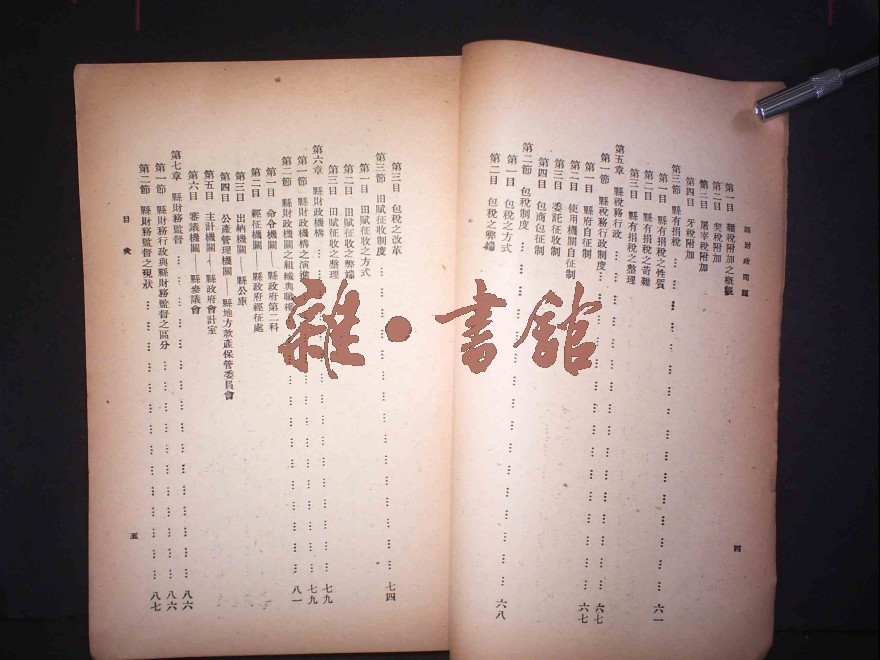 縣財政問題
第一目 雜稅附加之概觀
第二目 契稅附加
第三目 屠宰稅附加
第四目 牙稅附加
第三節 縣有捐稅 … 六一
第一目 縣有捐稅之性質
第二目 縣有捐稅之苛雜
第三目 縣有捐稅之整理
第五章 縣稅務行政 … 六七
第一節 縣稅務行政制度 … 六七
第一目 縣府自征制
第二目 使用機關自征制
第三目 委託征收制
第四目 包商包征制
第二節 包稅制度 … 六八
第一目 包稅之方式
第二目 包稅之弊端
四
第三目 包稅之改革
第三節 田賦征收制度 … 七四
第一目 田賦征收之方式
第二目 田賦征收之弊端
第三目 田賦征收之整理
第六章 縣財政機構 … 七九
第一節 縣財政機構之演進 … 七九
第二節 縣財政機關之組織與職權 … 八一
第一目 命令機關——縣政府第二科
第二目 經征機關——縣政府經征處
第三目 出納機關——縣公庫
第四目 公產管理機關——縣地方款產保管委員會
第五目 主計機關——縣政府會計室
第六目 審議機關——縣參議會
第七章 縣財務監督 … 八六
第一節 縣財務行政與縣財務監督之區分 … 八六
第二節 縣財務監督之現狀 … 八七
目 次
五
雜·書館